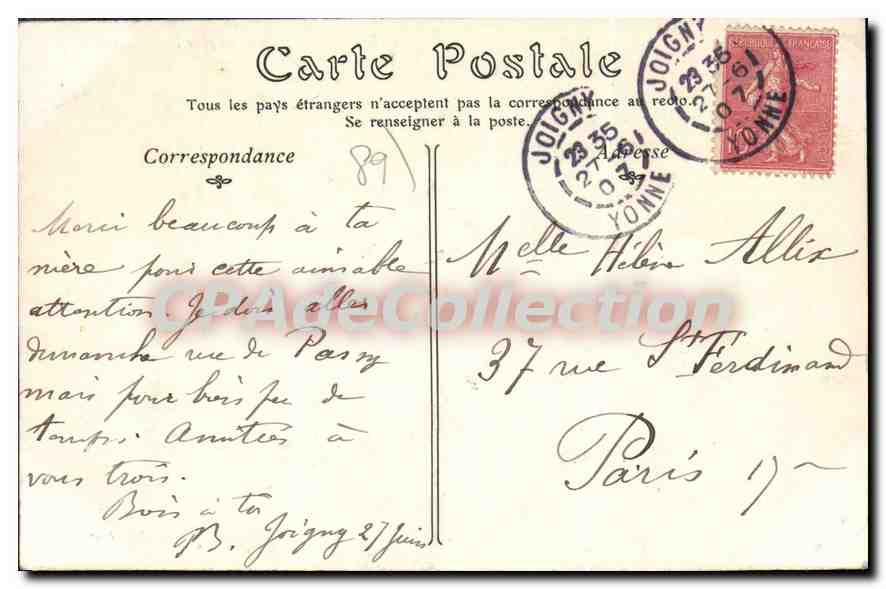 Carte Postale
Tous les pays étrangers n'acceptent pas la correspondance au recto.
Se renseigner à la poste.
Correspondance
Adresse
89
JOIGNY
23 35
27-6
07
YONNE
JOIGNY
23 35
27-6
07
YONNE
RÉPUBLIQUE FRANÇAISE
Merci beaucoup à ta
mère pour cette aimable
attention. Je dois aller
dimanche rue de Passy
mais pour bien peu de
temps. Amitiés à
vous trois.
à toi
PB. Joigny 27 Juin
Melle Hélène Allix
37 rue St Ferdinand
Paris 17
CPAdeCollection